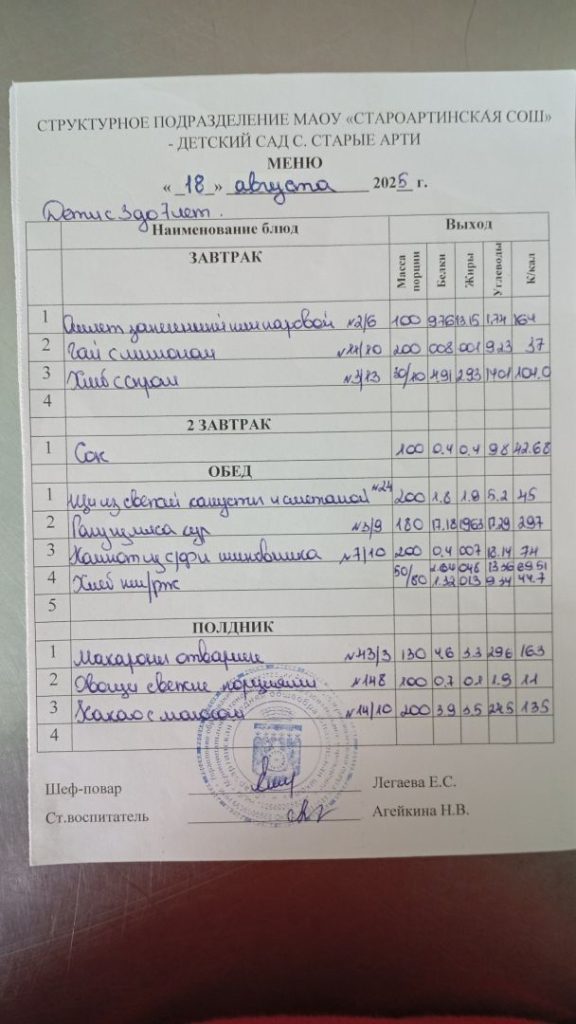 СТРУКТУРНОЕ ПОДРАЗДЕЛЕНИЕ МАОУ «СТАРОАРТИНСКАЯ СОШ»
- ДЕТСКИЙ САД С. СТАРЫЕ АРТИ
МЕНЮ
« 18 » августа 2025 г.
Дети с 3 до 7 лет.
Наименование блюд Выход
ЗАВТРАК Масса порции Белки Жиры Углеводы К/кал
1 Омлет запеченный или паровой №2/6 100 9.76 13.15 1.74 164
2 Чай с лимоном 200 008 001 9.23 37
3 Хлеб с сыром №3/13 30/10 4.91 2.93 14.01 104.0
4
2 ЗАВТРАК
1 Сок 100 0.4 0.4 9.8 42.68
ОБЕД
1 Щи из свежей капусты и сметаной №24 200 1.8 1.9 5.2 45
2 Рагу из мяса кур №3/9 180 17.18 1963 17.29 297
3 Компот из с/ф и шиповника №7/10 200 0.4 007 18.14 74
4 Хлеб пш/рж 50/80
5
ПОЛДНИК
1 Макароны отварные №43/3 130 4.6 3.3 29.6 163
2 Овощи свежие порциями №148 100 0.7 0.1 1.9 11
3 Какао с молоком №14/10 200 3.9 3.5 24.5 135
4
Шеф-повар Легаева Е.С.
Ст.воспитатель Агейкина Н.В.